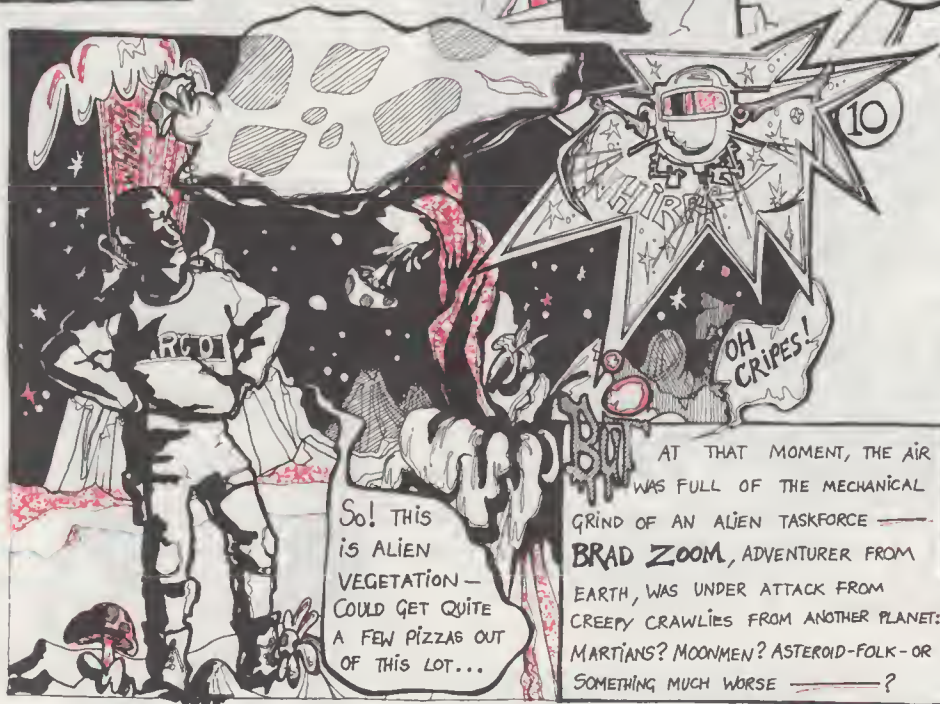 10
OH
CRIPES!
So! THIS
iS ALiEN
VEGETATION —
COULD GET QUITE
A FEW PiZZAS OUT
OF THiS LOT...
BUT AT THAT MOMENT, THE AiR
WAS FULL OF THE MECHANICAL
GRIND OF AN ALIEN TASKFORCE —
BRAD ZOOM, ADVENTURER FROM
EARTH, WAS UNDER ATTACK FROM
CREEPY CRAWLIES FROM ANOTHER PLANET:
MARTIANS? MOONMEN? ASTEROID-FOLK-OR
SOMETHING MUCH WORSE —?